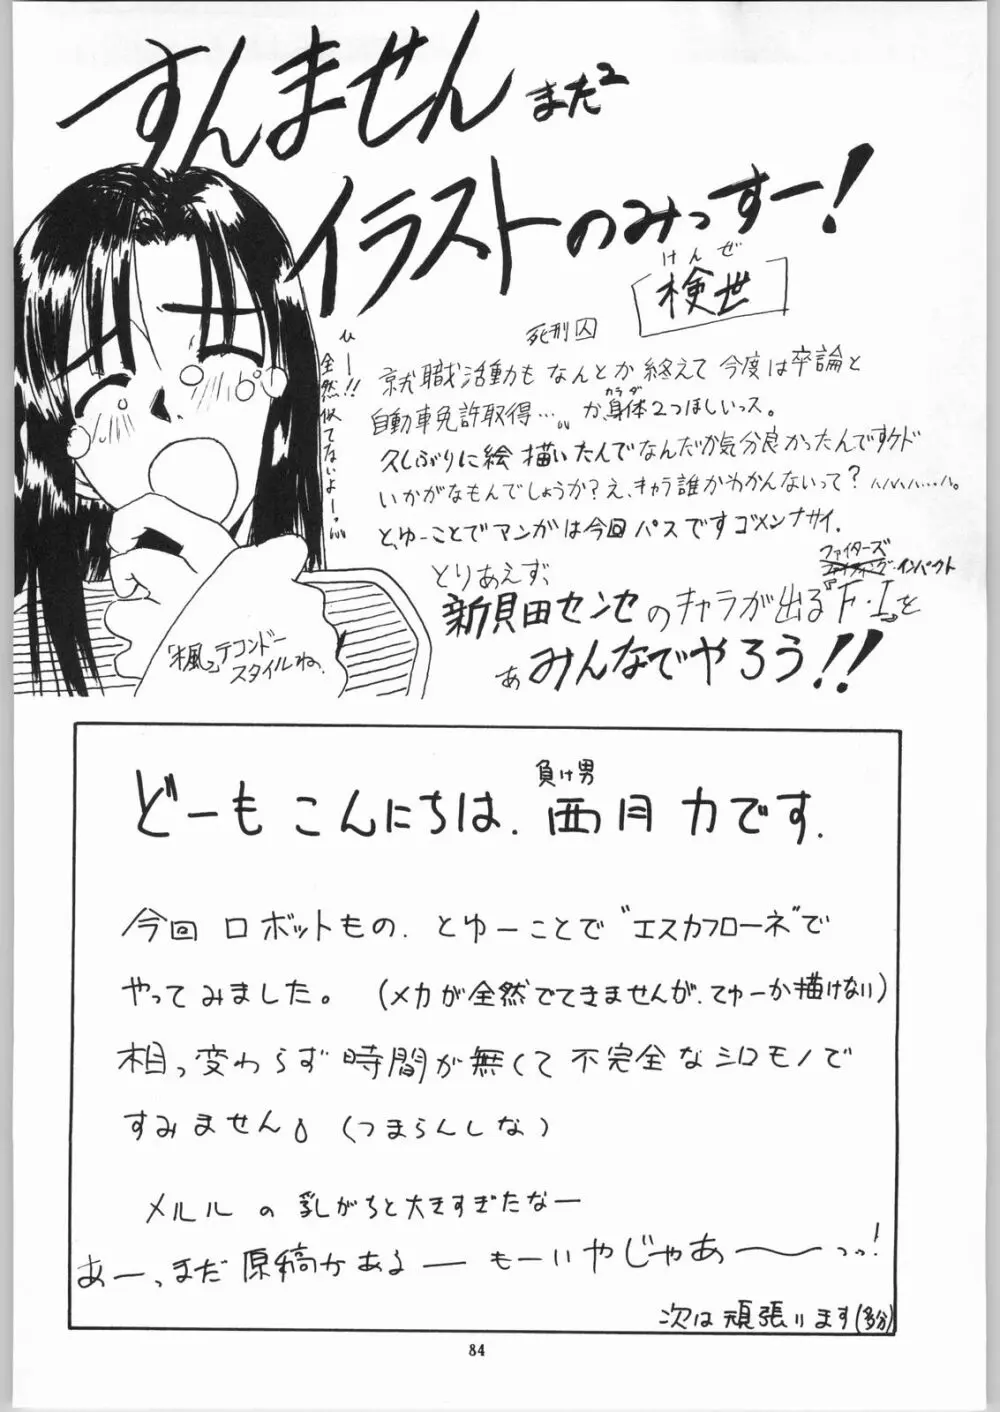 すんません まだ2
イラストのみっすー！
けんぜ
検世
死刑囚
就職活動も なんとか 終えて 今度は卒論と
カラダ
自動車免許取得…。か、身体2つほしいっス。
久しぶりに絵 描いたんでなんだか気分良かったんですケド
いかがなもんでしょうか？え、キャラ誰かわかんないって？ハハハハ…ハ。
と、ゆーことでマンガは今回 パスです ゴメンナサイ.
とりあえず、
ファイターズ
インパクト
新貝田センセのキャラが出る『F・I』を
あ みんなでやろう！！
ひー!!
全然似てないよー
「楓」テコンドー
スタイルね.
負け男
どーも こんにちは. 西月 力です.
今回 ロボットもの. とゆーことで"エスカフローネ"で
やってみました。 (メカが全然でてきませんが、てゆーか描けない)
相っ変わらず 時間が無くて 不完全なシロモノで
すみません (つまらんしな)
メルル の 乳がちと大きすぎたなー
あーっまだ 原稿があるー もーいやじゃあ〜〜っっ！
次は頑張ります(多分)
84